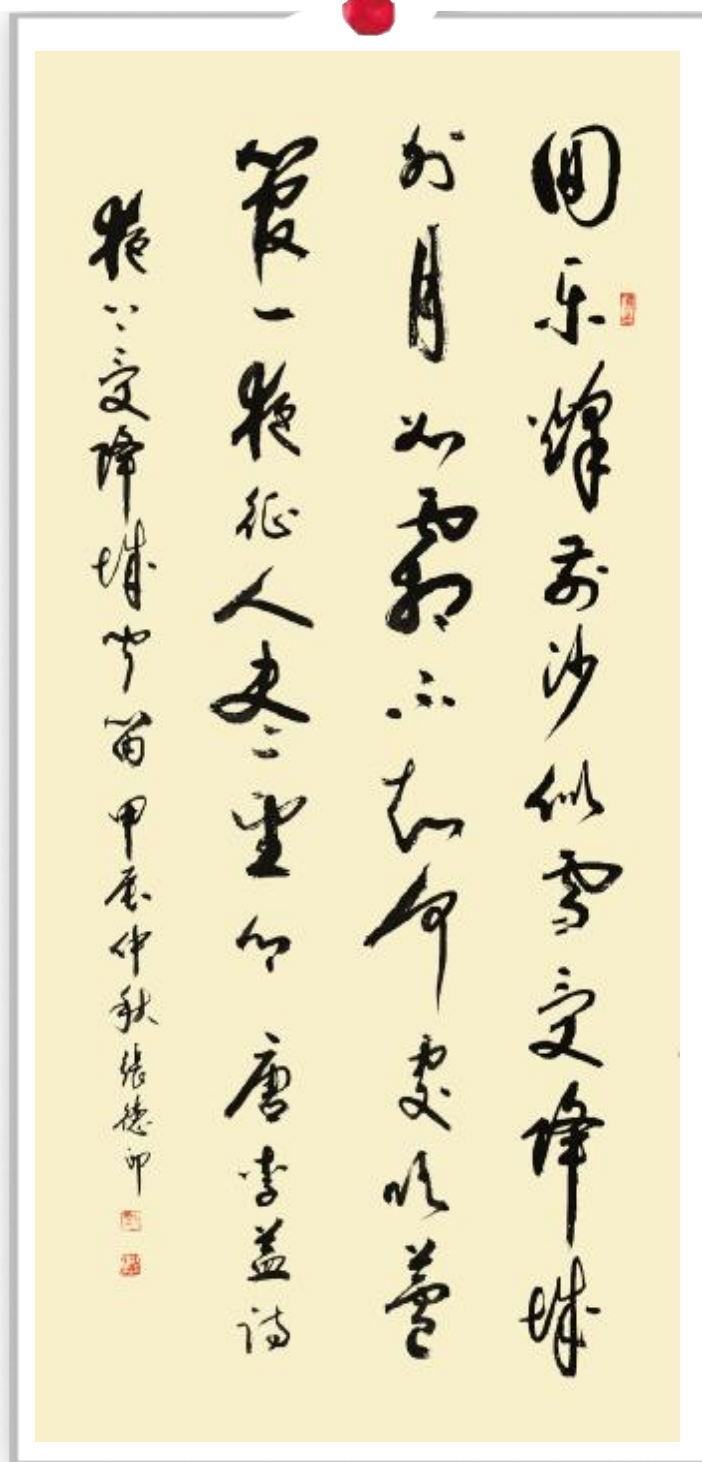 回乐烽前沙似雪受降城
外月如霜不知何處吹蘆
管一夜征人尽望乡 唐李益诗
夜上受降城闻笛 甲辰仲秋 张德印